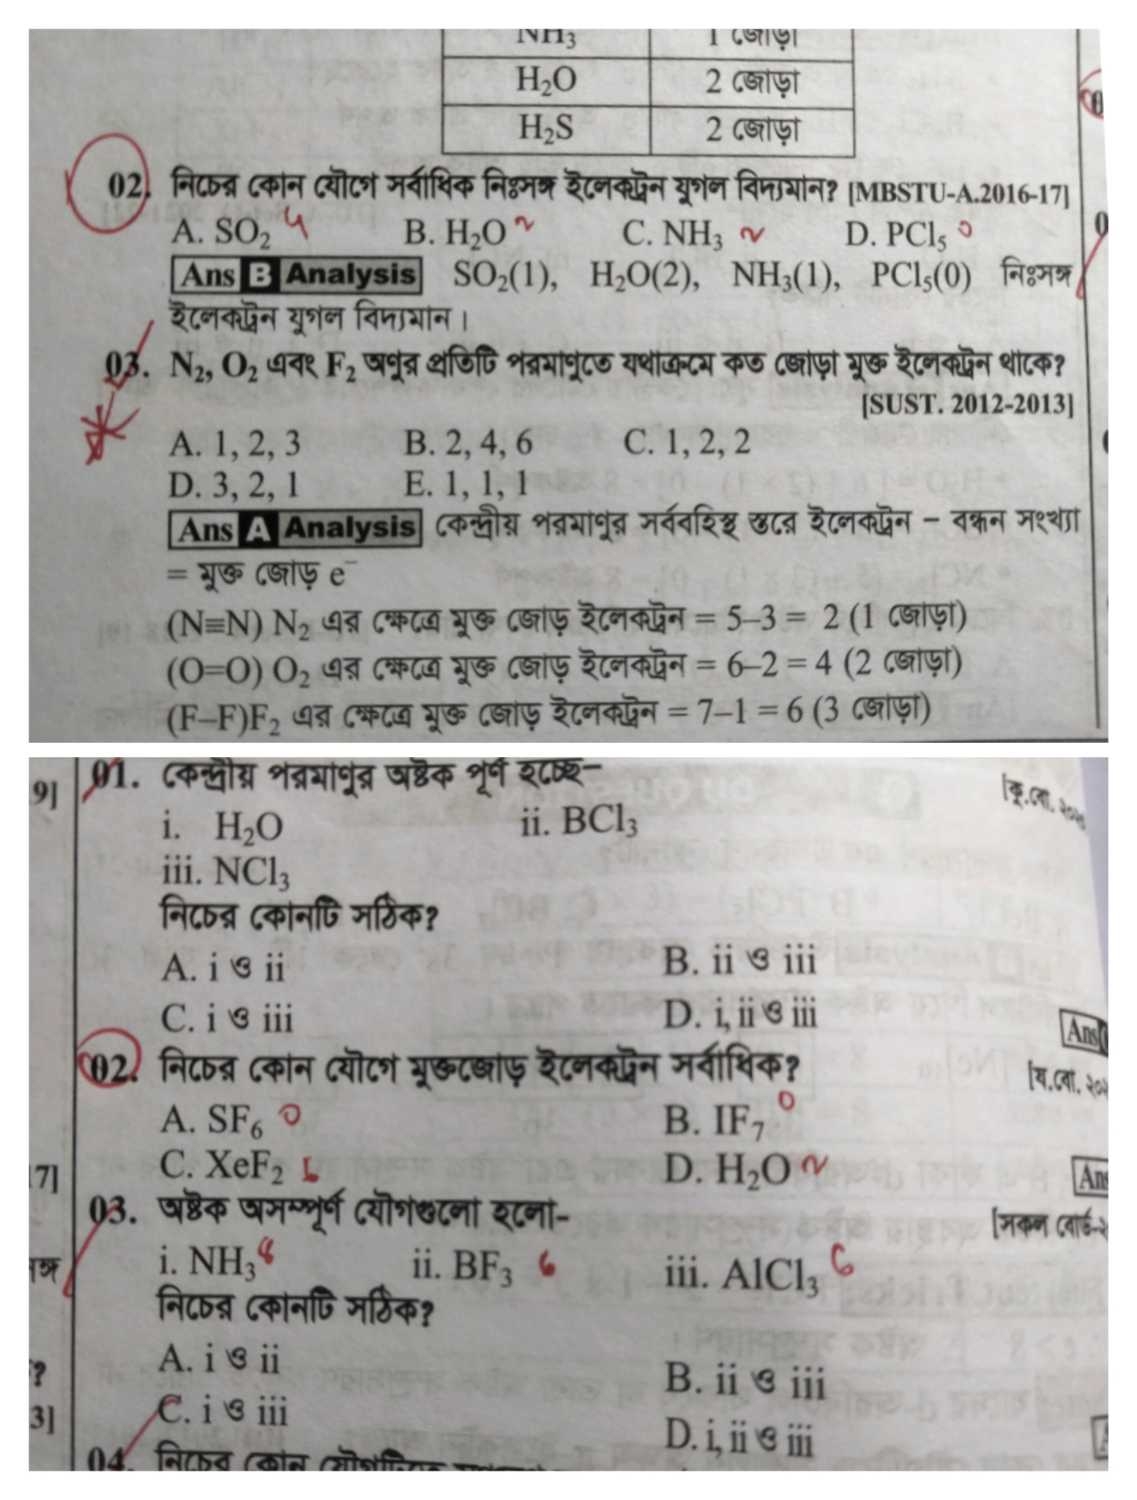 NH3 1 জোড়া
H2O 2 জোড়া
H2S 2 জোড়া
02. নিচের কোন যৌগে সর্বাধিক নিঃসঙ্গ ইলেকট্রন যুগল বিদ্যমান? [MBSTU-A.2016-17]
A. SO2 B. H2O C. NH3 D. PCl5 0
Ans B Analysis SO2(1), H2O(2), NH3(1), PCl5(0) নিঃসঙ্গ
ইলেকট্রন যুগল বিদ্যমান।
03. N2, O2 এবং F2 অণুর প্রতিটি পরমাণুতে যথাক্রমে কত জোড়া মুক্ত ইলেকট্রন থাকে?
[SUST. 2012-2013]
A. 1, 2, 3 B. 2, 4, 6 C. 1, 2, 2
D. 3, 2, 1 E. 1, 1, 1
Ans A Analysis কেন্দ্রীয় পরমাণুর সর্ববহিস্থ স্তরে ইলেকট্রন – বন্ধন সংখ্যা
= মুক্ত জোড় e–
(N≡N) N2 এর ক্ষেত্রে মুক্ত জোড় ইলেকট্রন = 5–3 = 2 (1 জোড়া)
(O=O) O2 এর ক্ষেত্রে মুক্ত জোড় ইলেকট্রন = 6–2 = 4 (2 জোড়া)
(F–F)F2 এর ক্ষেত্রে মুক্ত জোড় ইলেকট্রন = 7–1 = 6 (3 জোড়া)
9]
01. কেন্দ্রীয় পরমাণুর অষ্টক পূর্ণ হচ্ছে–
[কু.বো.
i. H2O ii. BCl3
iii. NCl3
নিচের কোনটি সঠিক?
A. i ও ii B. ii ও iii
C. i ও iii D. i, ii ও iii
Ans
02. নিচের কোন যৌগে মুক্তজোড় ইলেকট্রন সর্বাধিক?
[য.বো.
A. SF6 0 B. IF7 0
C. XeF2 D. H2O
17]
Ans
03. অষ্টক অসম্পূর্ণ যৌগগুলো হলো–
[সকল বোর্ড-
i. NH3 ii. BF3 6 iii. AlCl3 6
নিচের কোনটি সঠিক?
A. i ও ii B. ii ও iii
?
C. i ও iii D. i, ii ও iii
3]
04. নিচের কোন